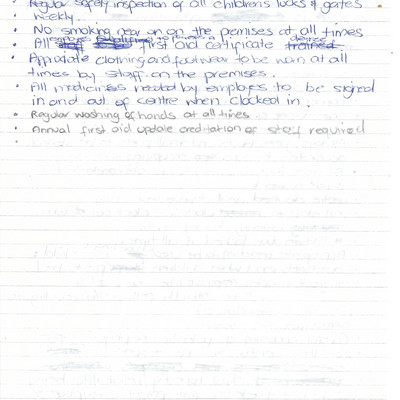 Regular safety inspection of all childrens locks & gates
weekly.
No smoking near or on the pemises at all times
All first aid certificate
Approiate clothing and footwear to be worn at all
times by staff on the premises.
All medicines needed by employees to be signed
in and out of centre when clocked in.
Regular washing of hands at all times
Annual first aid update creditation of staff required